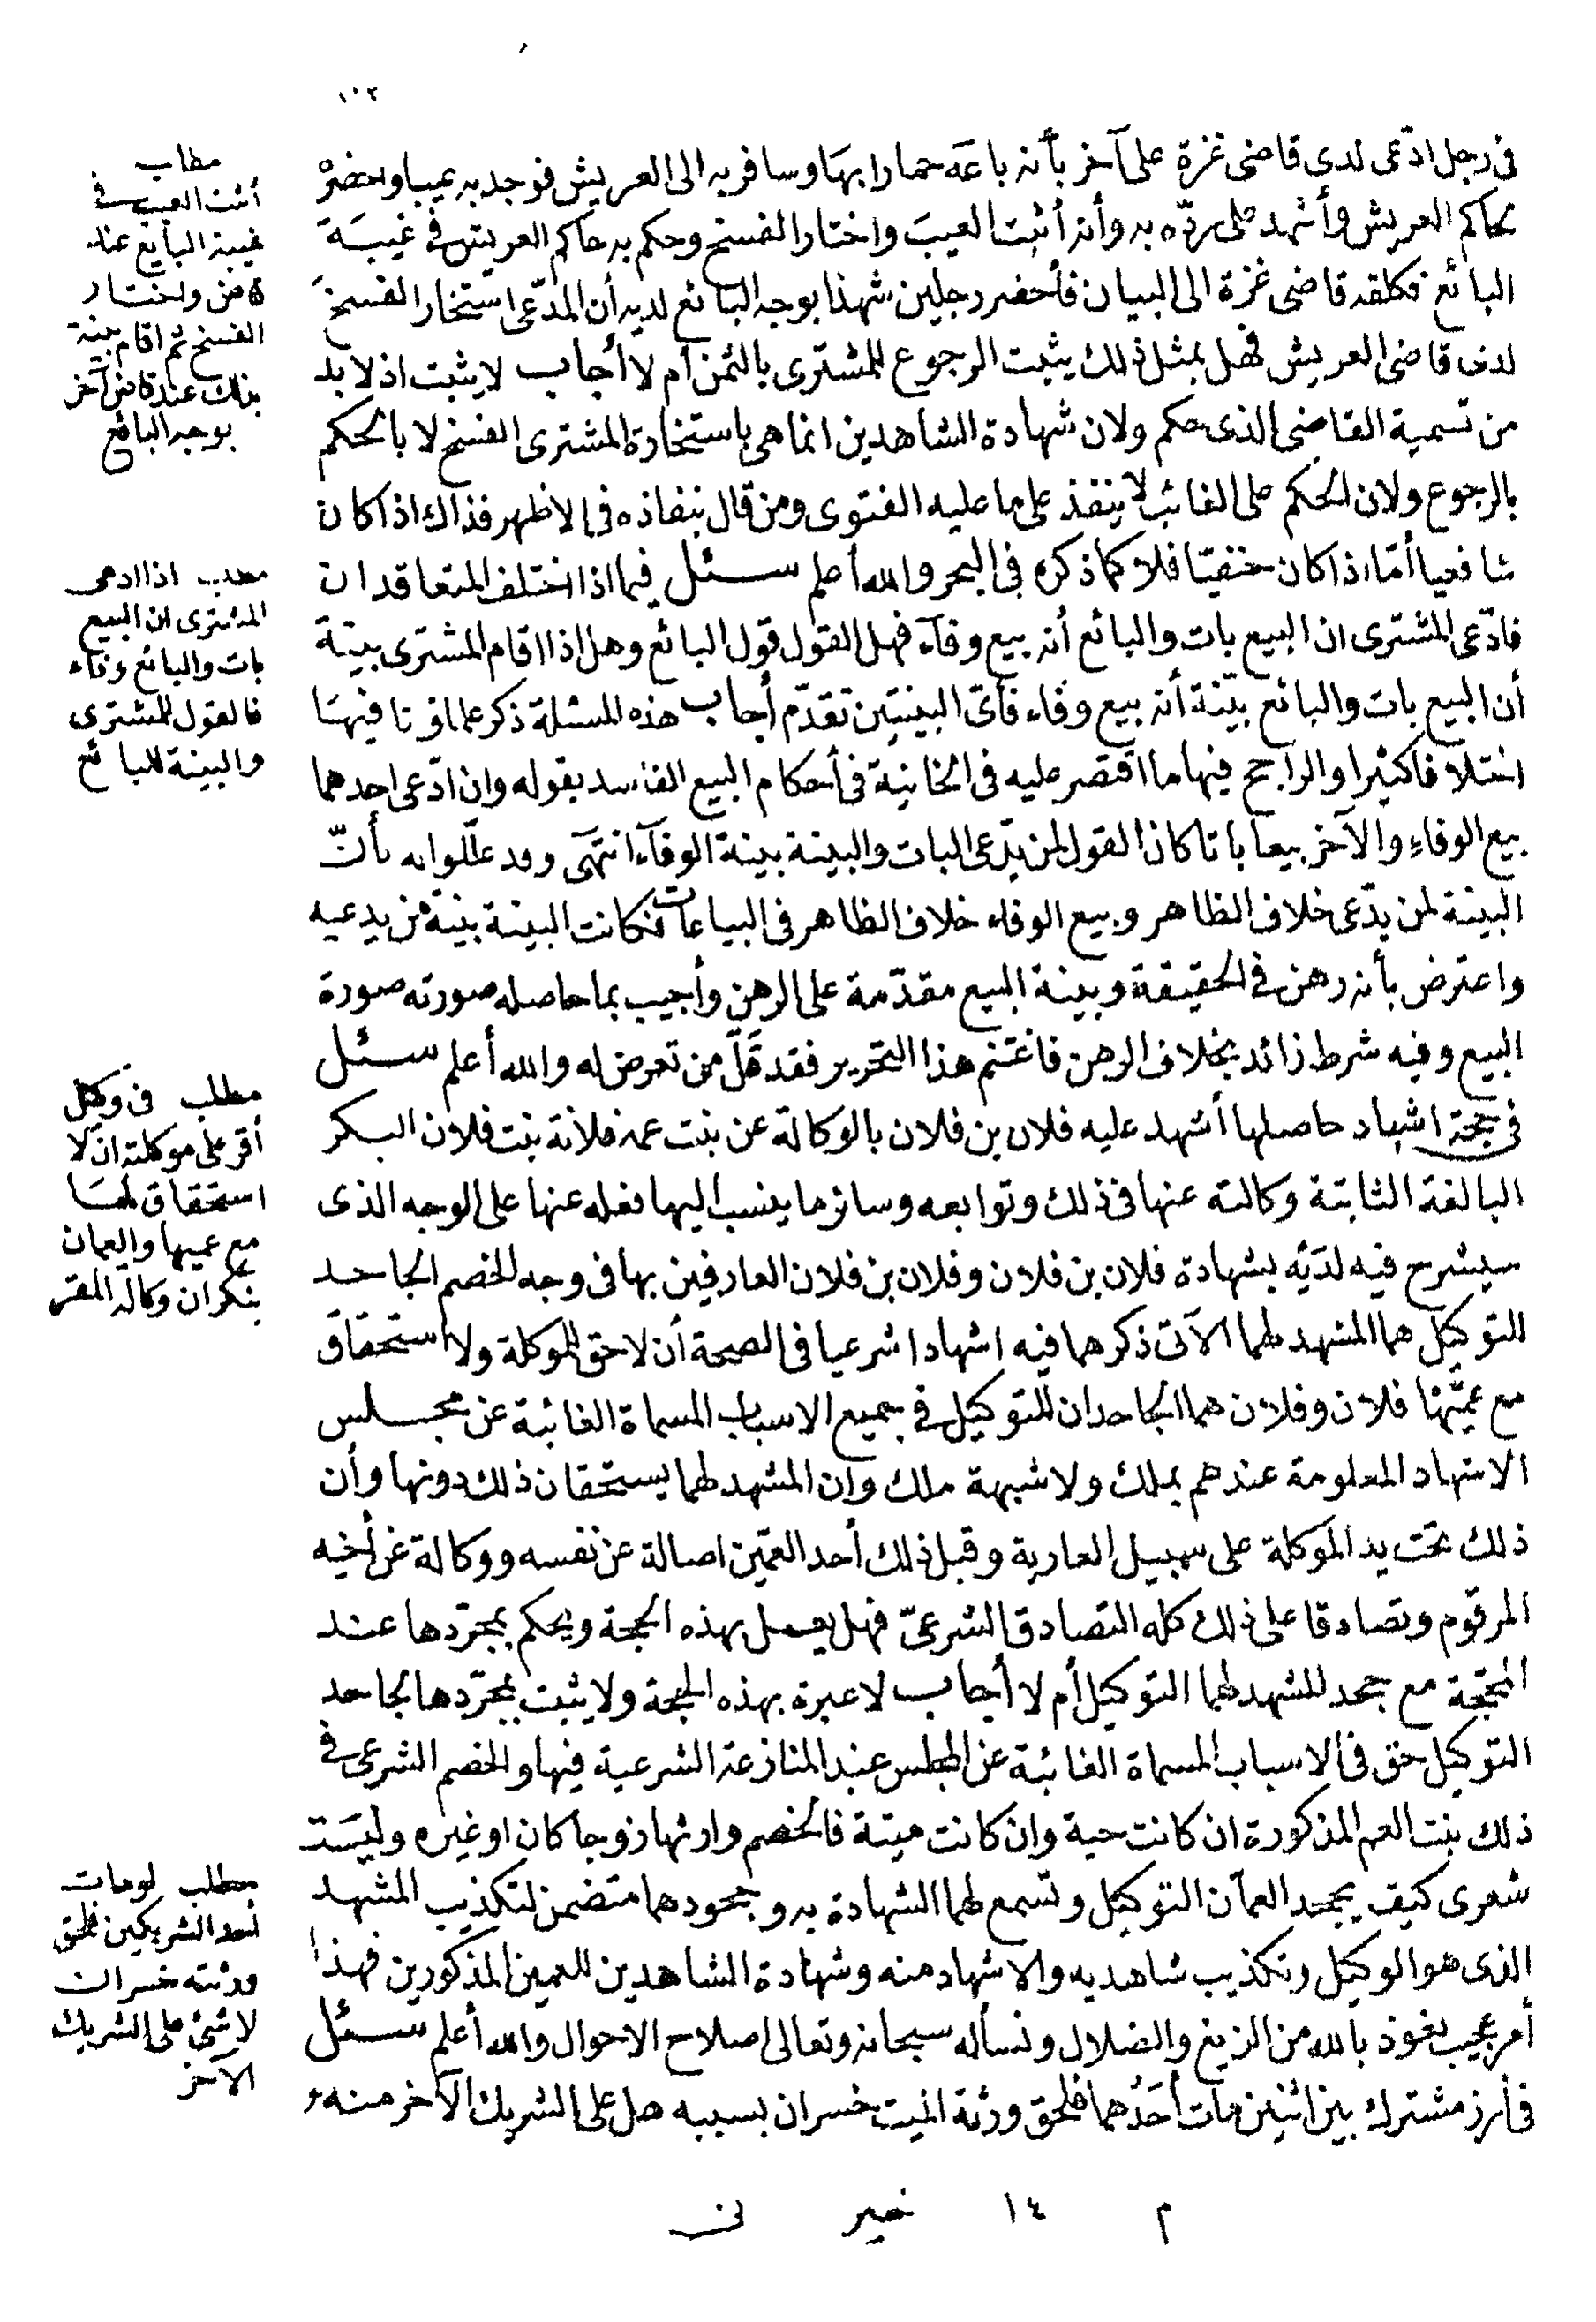 ١٠٣
فى رجل ادّعى لدى قاضى غزة على آخر بأنه باعه حمارا بها وسافر به الى العريش فوجد به عيبا وحضر
بحاكم العريش وأشهد على ردّه به وأنه أثبت العيب واختار الفسخ وحكم به حاكم العريش فى غيبة
البائع فكلفه قاضى غزة الى البيان فأحضر رجلين شهدا بوجه البائع لديه أن المدّعى استخار الفسخ
لدى قاضى العريش فهل بمثل ذلك يثبت الرجوع للمشترى بالثمن أم لا أجاب لا يثبت اذ لا بد
من تسمية القاضى الذى حكم ولان شهادة الشاهدين انما هى باستخارة المشترى الفسخ لا بالحكم
بالرجوع ولان الحكم على الغائب لا ينفذ على ما عليه الفتوى ومن قال بنفاذه فى الاظهر فذاك اذا كان
شافعيا أمّا اذا كان حنفيّا فلا كما ذكره فى البحر والله أعلم سئل فيما اذا اختلف المتعاقدان
فادّعى المشترى ان البيع بات والبائع أنه بيع وفاء فهل القول قول البائع وهل اذا اقام المشترى بينة
أن البيع بات والبائع بيّنة أنه بيع وفاء فأىّ البينتين تقدّم أجاب هذه المسئلة ذكر علماؤنا فيها
اختلافا كثيرا والراجح فيها ما اقتصر عليه فى الخانية فى أحكام البيع الفاسد بقوله وان ادّعى احدهما
بيع الوفاء والآخر بيعا باتا كان القول لمن يدّعى البات والبينة بينة الوفاء انتهى وقد عللوا به بأنّ
البينة لمن يدّعى خلاف الظاهر وبيع الوفاء خلاف الظاهر فى البياعات فكانت البينة بينة من يدعيه
واعترض بأنه رهن فى الحقيقة وبينة البيع مقدّمة على الرهن وأجيب بما حاصله صورته صورة
البيع وفيه شرط زائد بخلاف الرهن فاغتنم هذا التحرير فقد قلّ من تعرض له والله أعلم سئل
فى حجة اشهاد حاصلها أشهد عليه فلان بن فلان بالوكالة عن بنت عمه فلانة بنت فلان البكر
البالغة الثابتة وكالته عنها فى ذلك وتوابعه وسائر ما ينسب اليها فعله عنها على الوجه الذى
سيشرح فيه لديه بشهادة فلان بن فلان وفلان بن فلان العارفين بها فى وجه الخصم الجاحد
للتوكيل هما المشهد لهما الآتى ذكرهما فيه اشهادا شرعيا فى الصحة أن لا حق للموكلة ولا استحقاق
مع عمّيها فلان وفلان هما الجاحدان للتوكيل فى جميع الاسباب المسماة الغائبة عن مجلس
الاشهاد المعلومة عندهم بملك ولا شبهة ملك وان المشهد لهما يستحقان ذلك دونها وأن
ذلك تحت يد الموكلة على سبيل العارية وقبل ذلك أحد العمّين اصالة عن نفسه ووكالة عن أخيه
المرقوم وتصادقا على ذلك كله التصادق الشرعىّ فهل يعمل بهذه الحجة ويحكم بمجرّدها عند
المحجة مع جحد المشهد لهما التوكيل أم لا أجاب لا عبرة بهذه الحجة ولا يثبت بمجرّدها لجاحد
التوكيل حق فى الاسباب المسماة الغائبة عن المجلس عند المنازعة الشرعية فيها والخصم الشرعى فى
ذلك بنت العم المذكورة ان كانت حية وان كانت ميتة فالخصم وارثها زوجا كان او غيره وليست
شعرى كيف يجحد العمان التوكيل وتسمع لهما الشهادة به وجحودهما متضمن لتكذيب المشهد
الذى هو الوكيل وتكذيب شاهديه والاشهاد منه وشهادة الشاهدين للعمين المذكورين فهذا
أمر عجيب نعوذ بالله من الزيغ والضلال ونسأله سبحانه وتعالى اصلاح الاحوال والله أعلم سئل
فى أرز مشترك بين اثنين مات أحدهما فلحق ورثة الميت خسران بسببه هل على الشريك الآخر منه
مطلب
أثبت العيب فى
غيبة البائع عند
قاض واختار
الفسخ ثم اقام بينة
بذلك عند قاض آخر
بوجه البائع
مطلب اذا ادعى
المشترى ان البيع
بات والبائع وفاء
فالقول للمشترى
والبينة للبائع
مطلب فى وكيل
أقر على موكلته ان لا
استحقاق لها
مع عميها والعمان
ينكران وكالة المقر
مطلب لو مات
احد الشريكين فلحق
ورثته خسران
لا شئ على الشريك
الآخر
م ١٤ خير نى